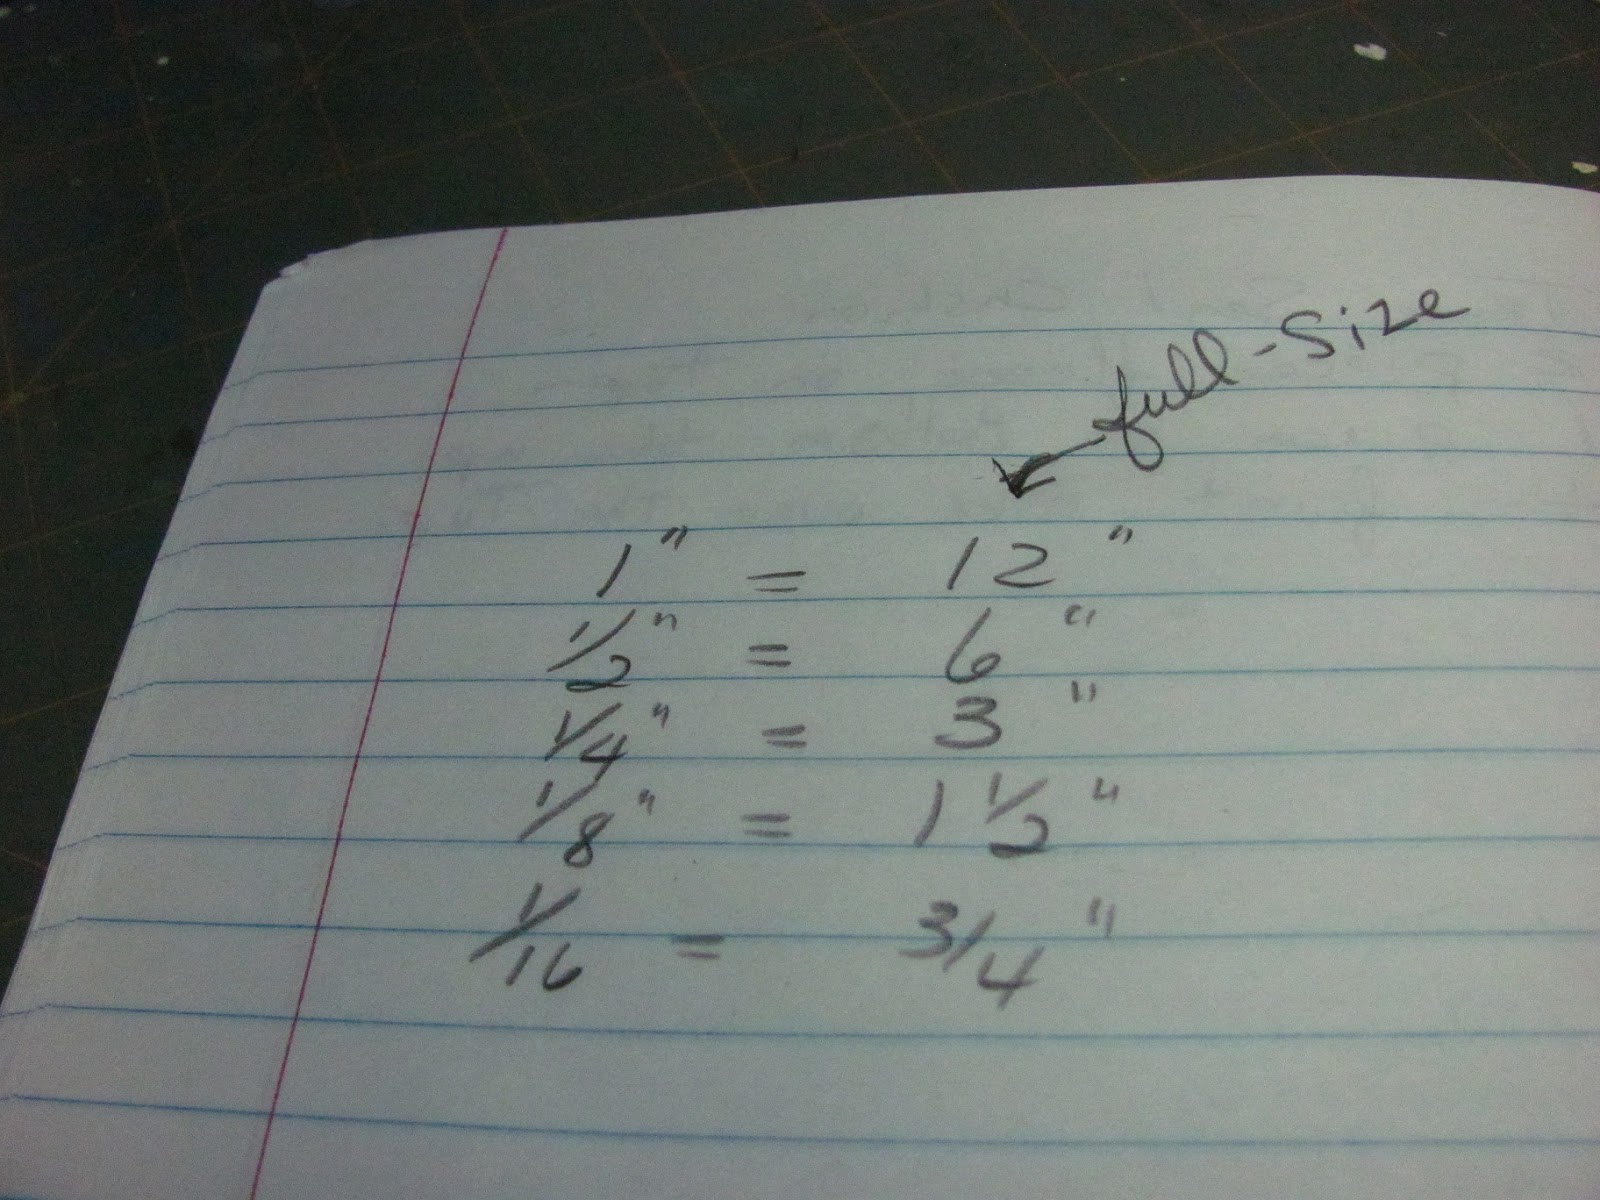 full-size
1" = 12"
1/2" = 6"
1/4" = 3"
1/8" = 1 1/2"
1/16 = 3/4"